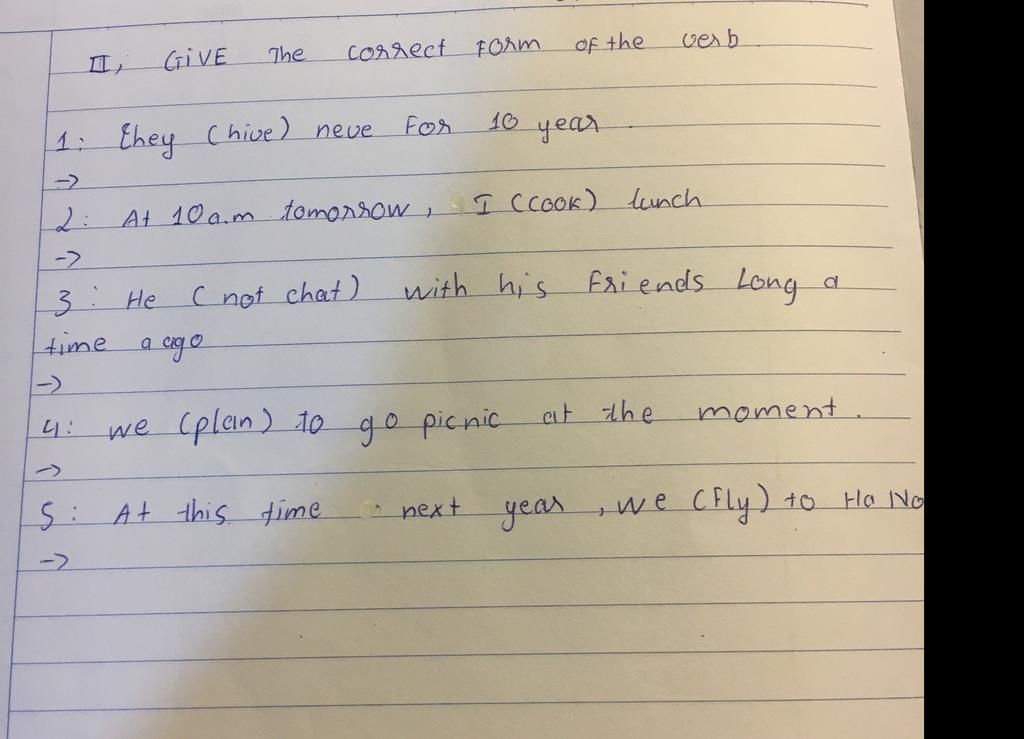 II, GIVE The correct form of the verb
1: they (hive) neve for 10 year.
->
2: At 10 a.m tomorrow, I (cook) lunch
->
3: He (not chat) with his friends Long a
time a ago
->
4: we (plan) to go picnic at the moment.
->
5: At this time next year, we (fly) to Ha No
->